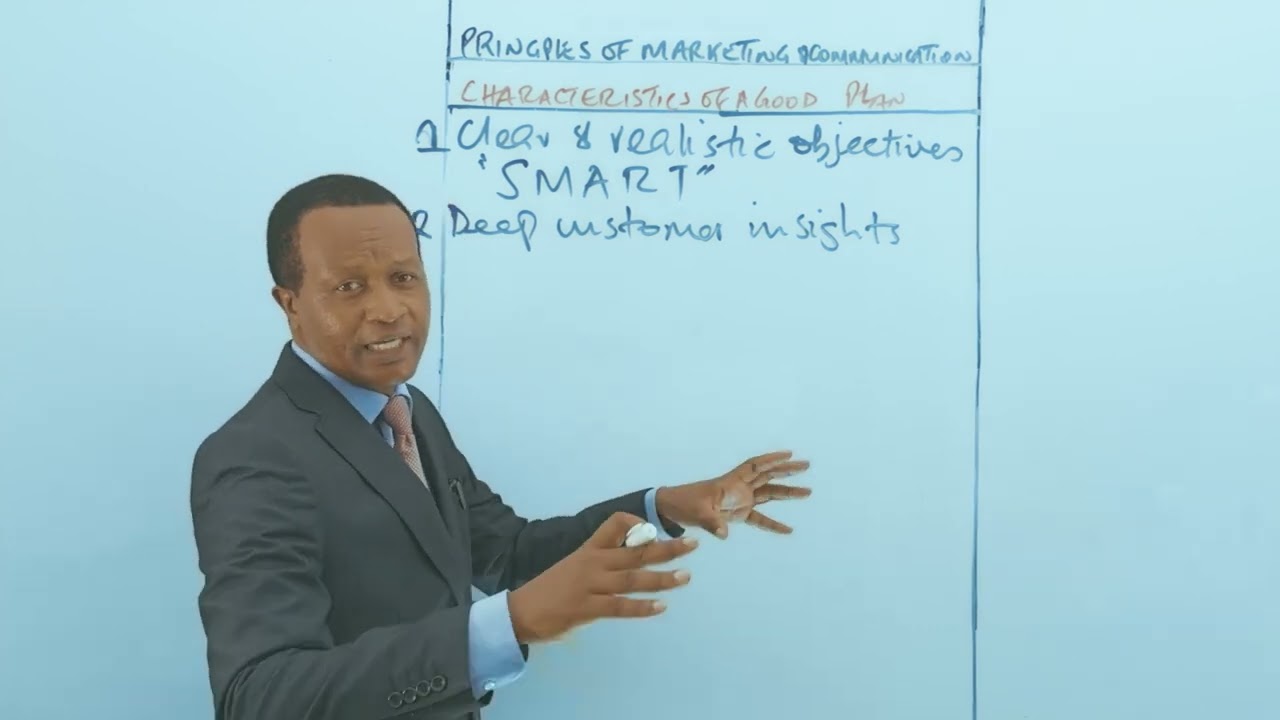 PRINCIPLES OF MARKETING & COMMUNICATION
CHARACTERISTICS OF A GOOD PLAN
1 Clear & realistic objectives
"SMART"
2 Deep customer insights